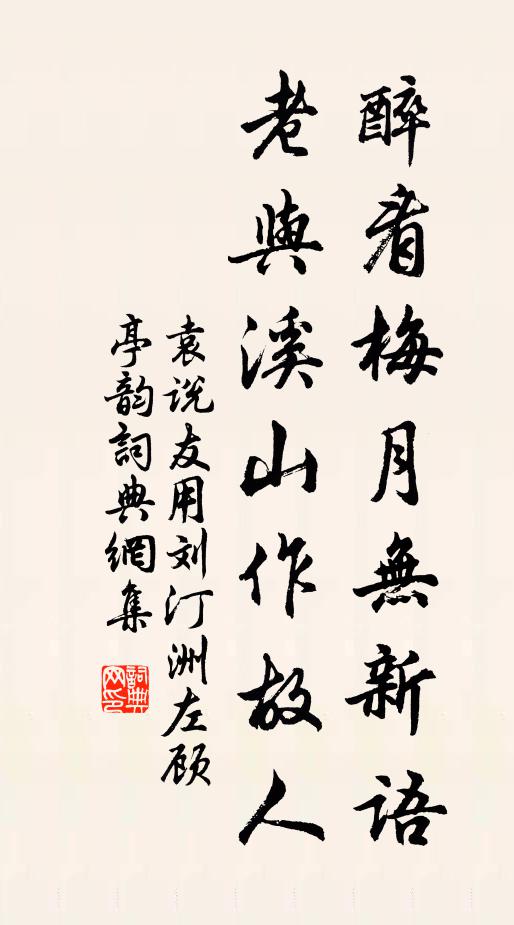 醉看梅月無新語
老與溪山作故人
袁说友用刘汀洲左顾
亭韵詞典網集
詞典网印